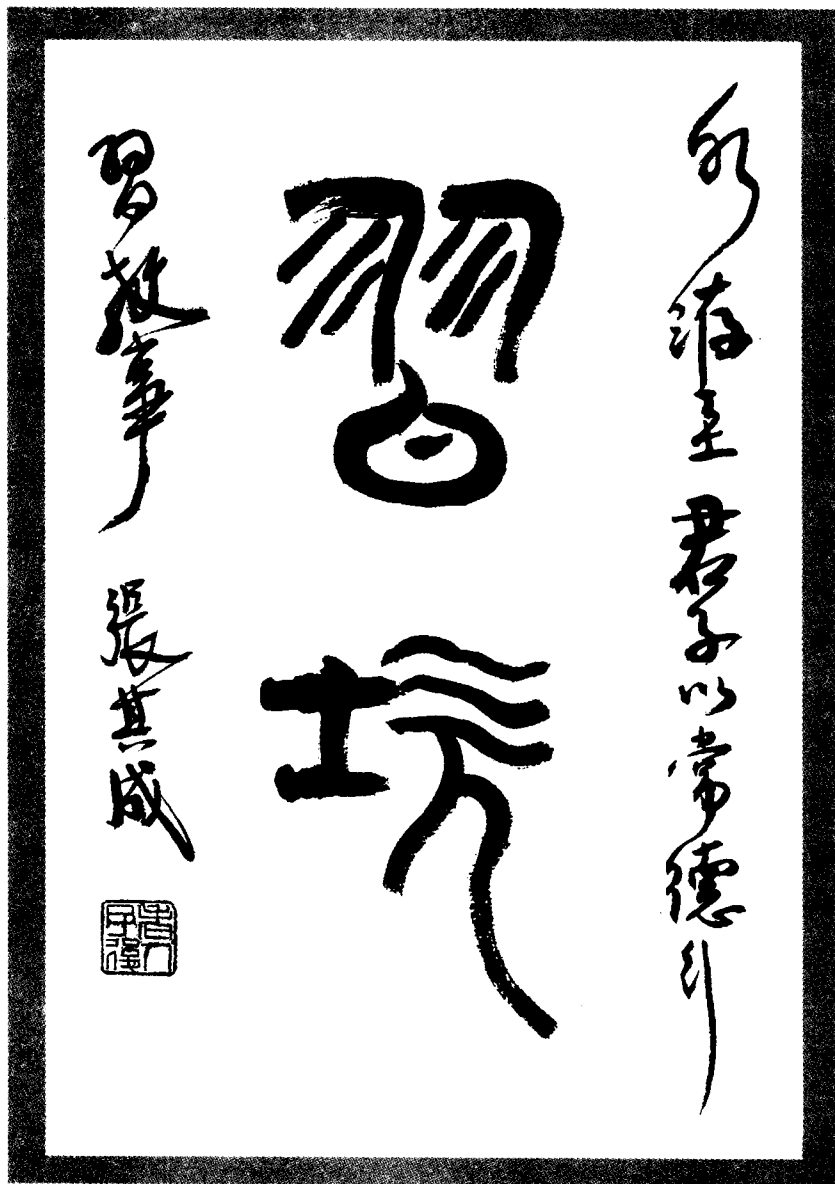 水洊至 君子以常德行
習坎
習教事 張其成